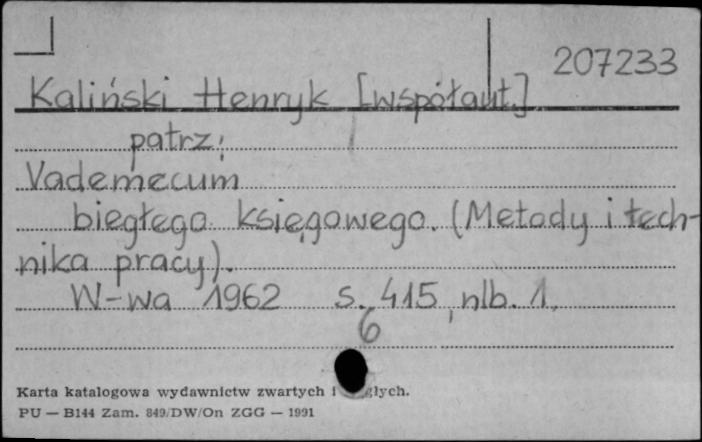 207233
Kaliński Henryk [współaut.]
patrz:
Vademecum
biegłego księgowego. (Metody i tech-
nika pracy).
W-wa 1962 s. 415, nlb. 1.
6
Karta katalogowa wydawnictw zwartych i
PU — B144 Zam. 849/DW/On ZGG — 1991